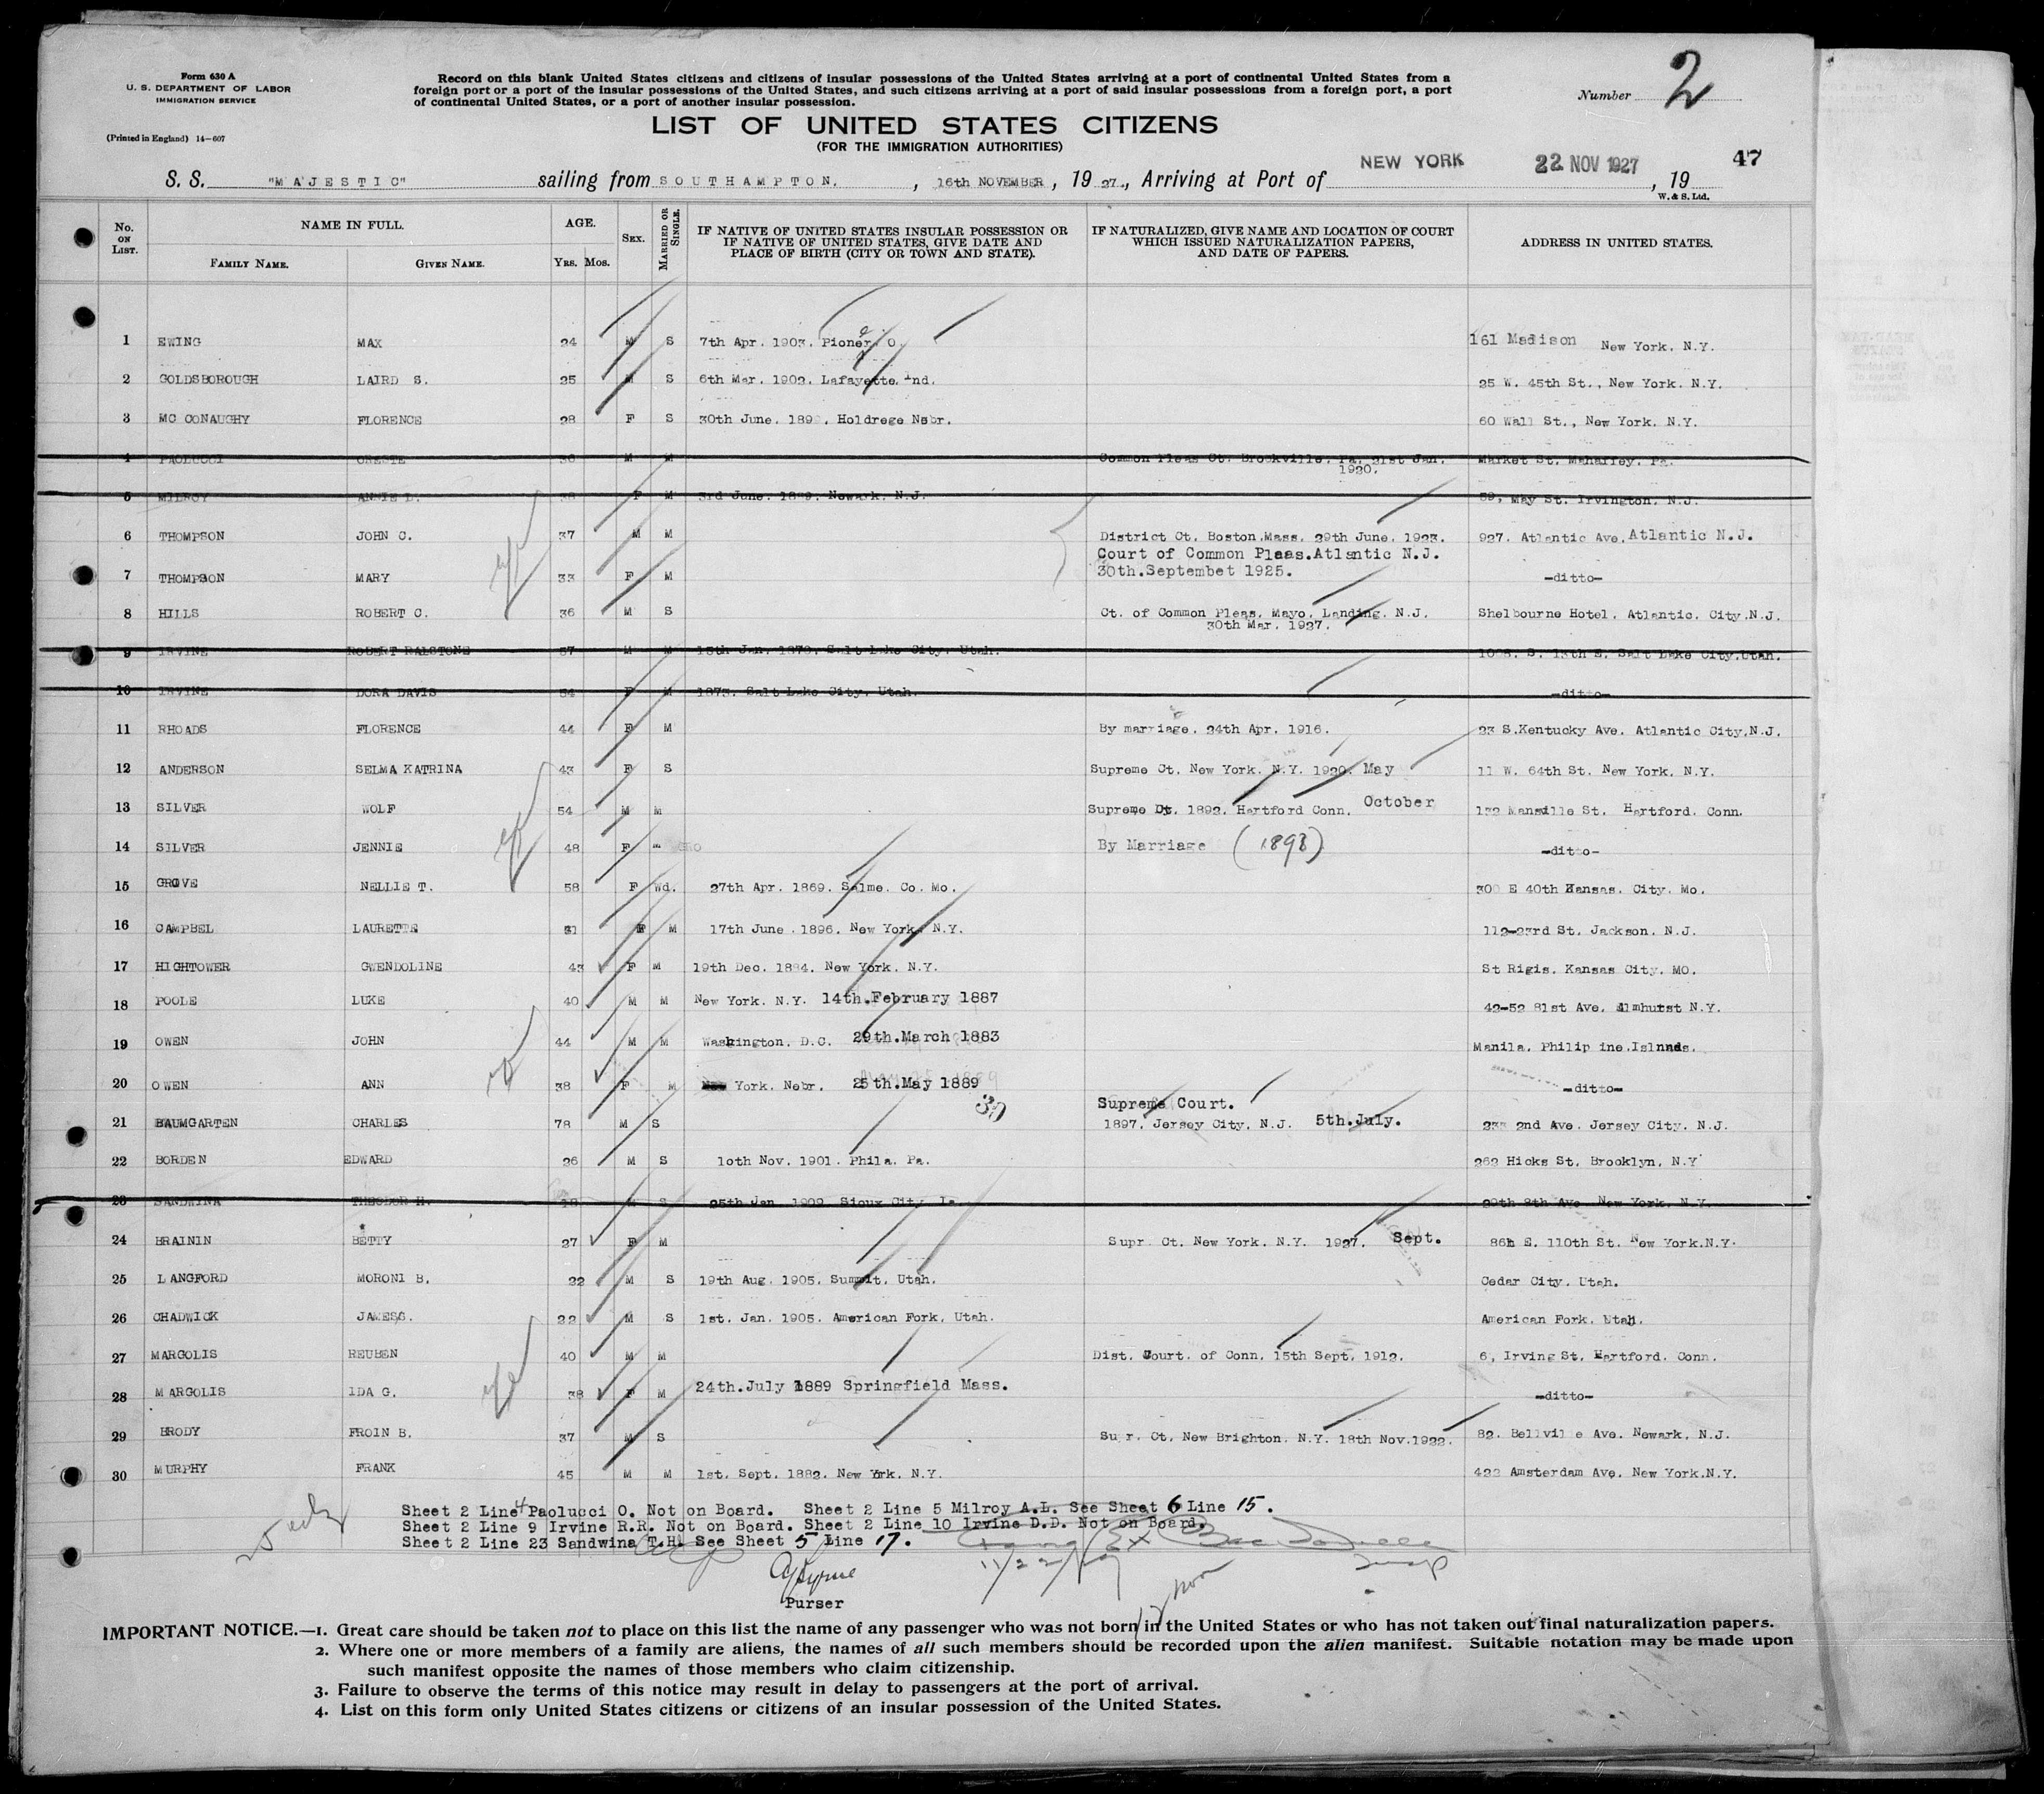 Form 630 A
U. S. DEPARTMENT OF LABOR
IMMIGRATION SERVICE
(Printed in England) 14—607
Record on this blank United States citizens and citizens of insular possessions of the United States arriving at a port of continental United States from a
foreign port or a port of the insular possessions of the United States, and such citizens arriving at a port of said insular possessions from a foreign port, a port
of continental United States, or a port of another insular possession.
Number 2
LIST OF UNITED STATES CITIZENS
(FOR THE IMMIGRATION AUTHORITIES)
47
S. S. "MAJESTIC" sailing from SOUTHAMPTON, , 16th NOVEMBER , 1927., Arriving at Port of NEW YORK 22 NOV 1927 , 19
W. & S. Ltd.
No. ON LIST. NAME IN FULL. FAMILY NAME. GIVEN NAME. AGE. YRS. MOS. SEX. MARRIED OR SINGLE. IF NATIVE OF UNITED STATES INSULAR POSSESSION OR IF NATIVE OF UNITED STATES, GIVE DATE AND PLACE OF BIRTH (CITY OR TOWN AND STATE). IF NATURALIZED, GIVE NAME AND LOCATION OF COURT WHICH ISSUED NATURALIZATION PAPERS, AND DATE OF PAPERS. ADDRESS IN UNITED STATES.
1 EWING MAX 24 M S 7th Apr. 1903. Pioneer, O. 161 Madison New York. N.Y.
2 GOLDSBOROUGH LAIRD S. 25 M S 6th Mar. 1902. Lafayette. Ind. 25 W. 45th St., New York. N.Y.
3 MC CONAUGHY FLORENCE 28 F S 30th June. 1899. Holdrege Nebr. 60 Wall St., New York. N.Y.
4 PAOLUCCI ORESTE 36 M M Common Pleas Ct. Brookville. Pa. 21st Jan. 1920. Market St. Mahaffey. Pa.
5 MILROY ANNIE L. 38 F M 3rd June. 1889. Newark. N.J. 59, May St. Irvington. N.J.
6 THOMPSON JOHN C. 37 M M District Ct. Boston.Mass. 29th June. 1923. 927. Atlantic Ave. Atlantic N.J.
Court of Common Pleas.Atlantic N.J.
7 THOMPSON MARY 33 F M 30th.Septembet 1925. -ditto-
8 HILLS ROBERT C. 36 M S Ct. of Common Pleas. Mayo. Landing. N.J. 30th Mar. 1927. Shelbourne Hotel. Atlantic. City.N.J.
9 IRVINE ROBERT RALSTONE 57 M M 15th Jan. 1870. Salt Lake City. Utah. S. 13th E. Salt Lake City.Utah.
10 IRVINE DORA DAVIS 54 F M 1873. Salt Lake City. Utah. -ditto-
11 RHOADS FLORENCE 44 F M By marriage. 24th Apr. 1916. 23 S.Kentucky Ave. Atlantic City.N.J.
12 ANDERSON SELMA KATRINA 43 F S Supreme Ct. New York. N.Y. 1920. May 11 W. 64th St. New York. N.Y.
13 SILVER WOLF 54 M M Supreme Ct. 1892. Hartford Conn. October 132 Mansille St. Hartford. Conn.
14 SILVER JENNIE 48 F M By Marriage (1898) -ditto-
15 GROVE NELLIE T. 58 F Wd. 27th Apr. 1869. Salme. Co. Mo. 300 E 40th Kansas. City. Mo.
16 CAMPBEL LAURETTE 31 F M 17th June. 1896. New York. N.Y. 112-23rd St. Jackson. N.J.
17 HIGHTOWER GWENDOLINE 43 F M 19th Dec. 1884. New York. N.Y. St Rigis. Kansas City. MO.
18 POOLE LUKE 40 M M New York. N.Y. 14th.February 1887 42-52 81st Ave. Elmhurst N.Y.
19 OWEN JOHN 44 M M Washington. D.C. 29th.March 1883 Manila. Philip ine.Islnnds.
20 OWEN ANN 38 F M York. Nebr. 25th.May 1889 -ditto-
30 Supreme Court.
21 BAUMGARTEN CHARLES 78 M S 1897. Jersey City. N.J. 5th.July. 233 2nd Ave. Jersey City. N.J.
22 BORDEN EDWARD 26 M S 10th Nov. 1901. Phila. Pa. 262 Hicks St. Brooklyn. N.Y
23 SANDWINA THEODOR H. 18 M S 25th Jan. 1909. Sioux City Ia. 29th 8th Ave. New York. N.Y.
24 BRAININ BETTY 27 F M Supr. Ct. New York. N.Y. 1927. Sept. E. 110th St. New York.N.Y.
25 LANGFORD MORONI B. 22 M S 19th Aug. 1905. Summit. Utah. Cedar City. Utah.
26 CHADWICK JAMES G. 22 M S 1st. Jan. 1905. American Fork. Utah. American Fork. Utah.
27 MARGOLIS REUBEN 40 M M Dist. Court. of Conn. 15th Sept. 1912. 6, Irving St. Hartford. Conn.
28 MARGOLIS IDA G. 38 F M 24th.July 1889 Springfield Mass. -ditto-
29 BRODY FROIN B. 37 M S Su r. Ct. New Brighton. N.Y. 18th Nov.1922. 82. Bellville Ave. Newark. N.J.
30 MURPHY FRANK 45 M M 1st. Sept. 1882. New York. N.Y. 422 Amsterdam Ave. New York.N.Y.
Sheet 2 Line 4 Paolucci O. Not on Board. Sheet 2 Line 5 Milroy A.L. See Sheet 6 Line 15.
Sheet 2 Line 9 Irvine R.R. Not on Board. Sheet 2 Line 10 Irvine D.D. Not on Board.
Sheet 2 Line 23 Sandwina T.H. See Sheet 5 Line 17.
11/22/27
Purser
IMPORTANT NOTICE.—1. Great care should be taken not to place on this list the name of any passenger who was not born in the United States or who has not taken out final naturalization papers.
2. Where one or more members of a family are aliens, the names of all such members should be recorded upon the alien manifest. Suitable notation may be made upon
such manifest opposite the names of those members who claim citizenship.
3. Failure to observe the terms of this notice may result in delay to passengers at the port of arrival.
4. List on this form only United States citizens or citizens of an insular possession of the United States.